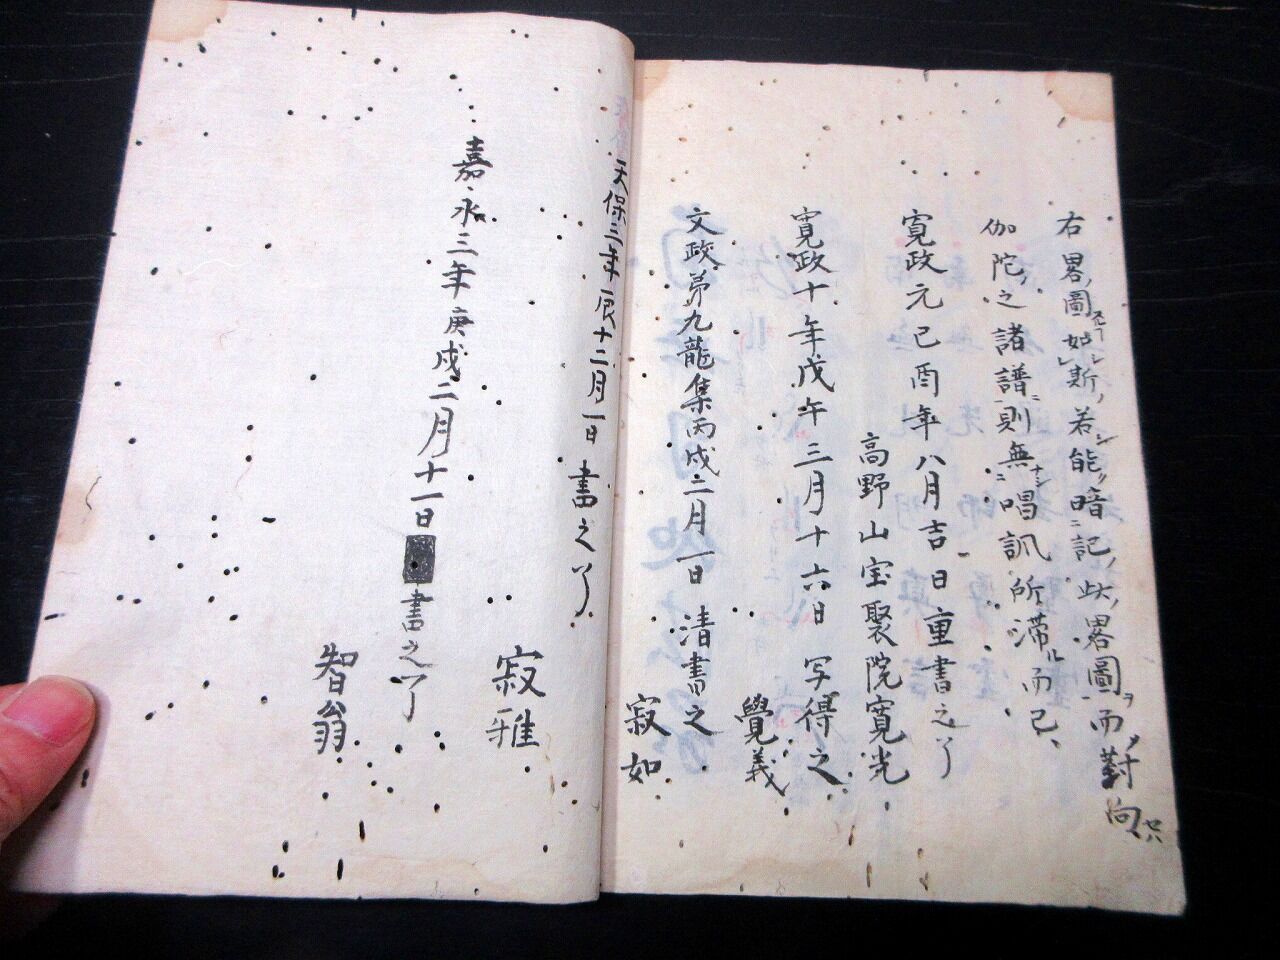 右畧圖如斯若能暗記此畧圖而對向セハ
伽陀之諸譜則無唱訊所滞而已
寛政元己酉年八月吉日重書之了
高野山宝聚院寛光
寛政十年戊午三月十六日写得之
覺義
文政第九龍集丙戌二月一日清書之
寂如
天保三年辰十二月一日書之了
寂雅
嘉永三年庚戌二月十一日書之了
智翁